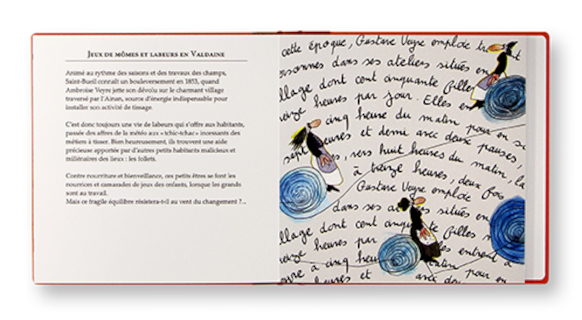 JEUX DE MÔMES ET LABEURS EN VALDAINE
Animé au rythme des saisons et des travaux des champs,
Saint-Bueil connaît un bouleversement en 1853, quand
Ambroise Veyre jette son dévolu sur le charmant village
traversé par l'Ainan, source d'énergie indispensable pour
installer son activité de tissage.
C'est donc toujours une vie de labeurs qui s'offre aux habitants,
passée des affres de la météo aux « tchic-tchac » incessants des
métiers à tisser. Bien heureusement, ils trouvent une aide
précieuse apportée par d'autres petits habitants malicieux et
millénaires des lieux : les follets.
Contre nourriture et bienveillance, ces petits êtres se font les
nourrices et camarades de jeux des enfants, lorsque les grands
sont au travail.
Mais ce fragile équilibre résistera-t-il au vent du changement ?...
cette époque, Gustave Veyre emploie
sonnes dans ses ateliers situés en
llage dont cent cinquante filles
heures par jour. Elles en
à cinq heure du matin pour en
sept heures et demi avec deux pauses,
s, vers huit heures du matin, la
à treize heures, deux fois
Gustave Veyre emploie
dans ses situés en
llage dont cent
heures par entrent à
à cinq heures matin pour
heures et avec deux